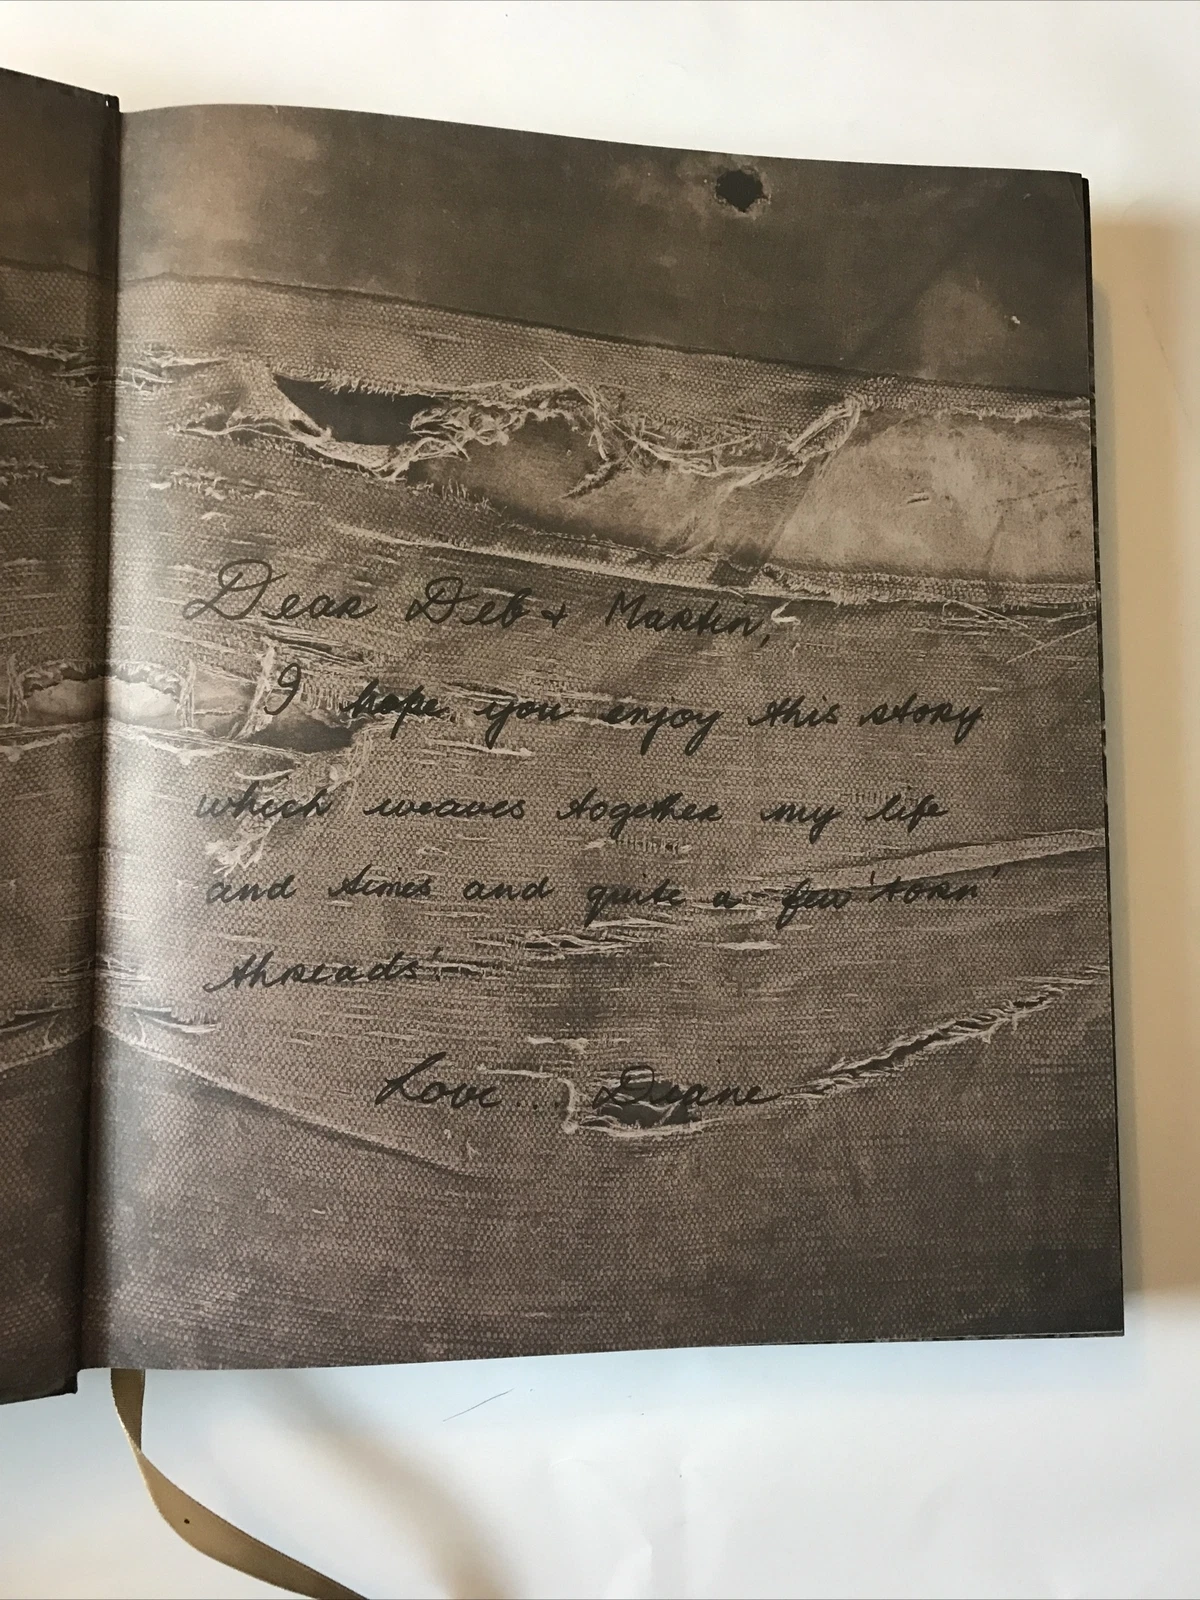 Dear Deb + Martin,
I hope you enjoy this story
which weaves together my life
and times and quite a few 'torn'
threads'.
Love... Deane